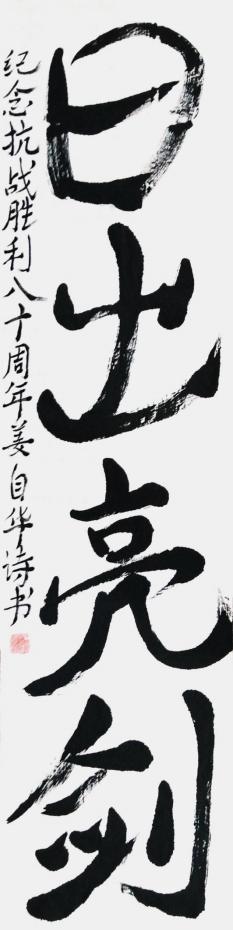 日出亮剑
纪念抗战胜利八十周年姜自华诗书